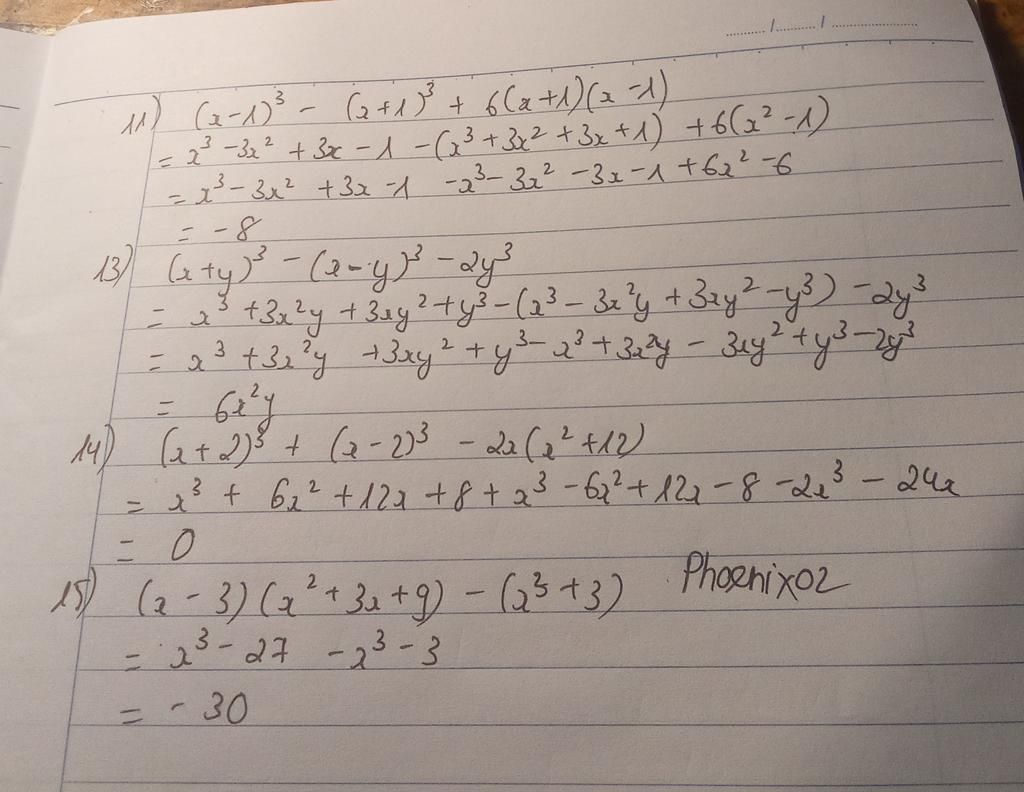 11) (x-1)³ - (x+1)³ + 6(x+1)(x-1)
= x³ -3x² + 3x - 1 -(x³ + 3x² + 3x + 1) + 6(x² - 1)
= x³ - 3x² + 3x - 1 - x³ - 3x² - 3x - 1 + 6x² - 6
= - 8
13) (x+y)³ - (x-y)³ - 2y³
= x³ + 3x²y + 3xy² + y³ - (x³ - 3x²y + 3xy² - y³) - 2y³
= x³ + 3x²y + 3xy² + y³ - x³ + 3x²y - 3xy² + y³ - 2y³
= 6x²y
14) (x + 2)³ + (x - 2)³ - 2x(x² + 12)
= x³ + 6x² + 12x + 8 + x³ - 6x² + 12x - 8 - 2x³ - 24x
= 0
15) (x - 3)(x² + 3x + 9) - (x³ + 3) Phoenix02
= x³ - 27 - x³ - 3
= - 30